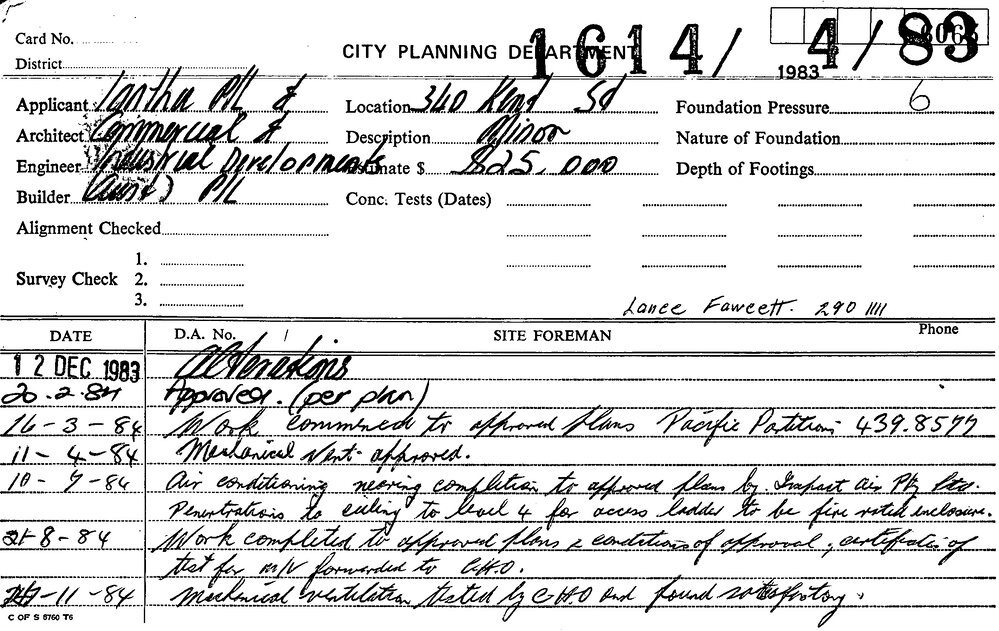 Card No.
CITY PLANNING DEPARTMENT 1614/ 4/83
District
1983
Applicant Iantha P/L & Location 340 Kent St Foundation Pressure 6
Architect Commercial & Description Minor Nature of Foundation
Engineer Industrial Developments Estimate $ $25,000 Depth of Footings
Builder (Aust) P/L Conc. Tests (Dates)
Alignment Checked
1.
Survey Check 2.
3.
Lance Fawcett. 290 1111
DATE D.A. No. / SITE FOREMAN Phone
12 DEC 1983 Alterations
20.2.84 Approved. (per plan)
16-3-84 Work commenced to approved plans Pacific Partitions 439.8577
11-4-84 Mechanical Vent approved.
10-7-84 Air conditioning nearing completion to approved plans by Impact Air Pty Ltd.
Penetrations to ceiling to level 4 for access ladder to be fire rated enclosure.
21-8-84 Work completed to approved plans & conditions of approval; certificates of
test for M/V forwarded to C.H.O.
-11-84 Mechanical ventilation tested by CHO and found satisfactory.
C OF S 8760 T6